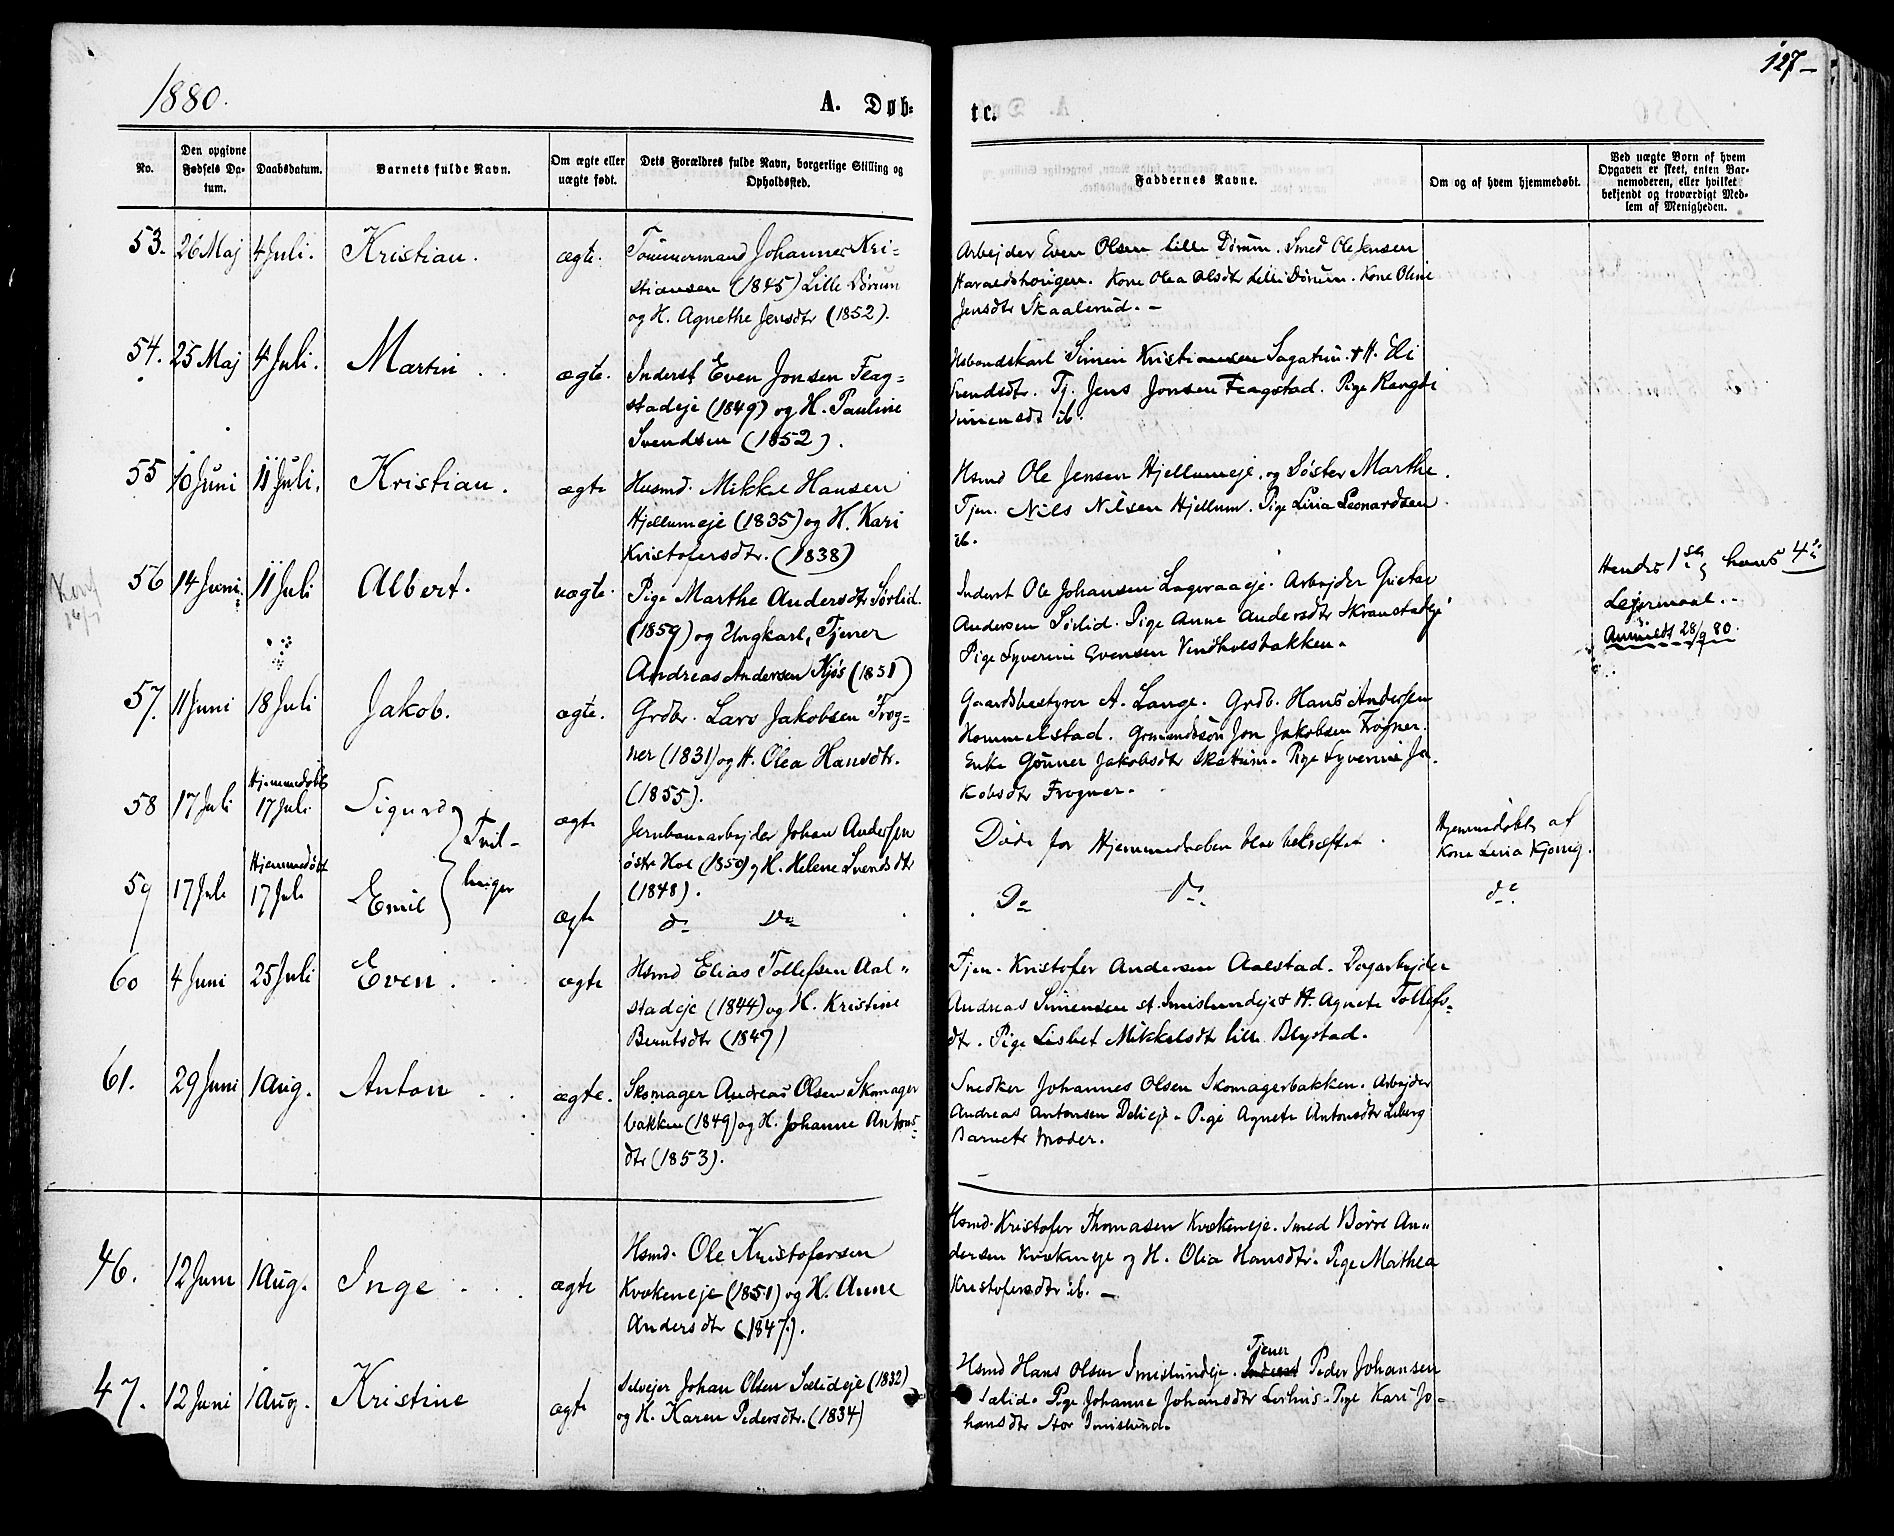 1880.
A. Døb=
tc.
127-
No.
Den opgivne Fødsels Da-tum.
Daabsdatum.
Barnets fulde Navn.
Om ægte eller uægte født.
Dets Forældres fulde Navn, borgerlige Stilling og Opholdssted.
Faddernes Navne.
Om og af hvem hjemmedøbt.
Ved uægte Børn af hvem Opgaven er skeet, enten Bar-nemoderen, eller hvilket bekjendt og troværdigt Med-lem af Menigheden.
53. 26 Maj 4 Juli. Kristian. ægte.
Tømmermand Johannes Kri-
stiansen (1845) Lille Dørum
og H. Agnethe Jensdtr (1852).
Arbejder Even Olsen lille Dørum. Smed Ole Jensen
Haraldshougen. Kone Olea Olsdtr Lille Dørum. Kone Oline
Jensdtr Skaalerud. -
54. 25 Maj 4 Juli. Martin . . ægte.
Inderst Even Jonsen Flag=
stadeje (1849) og H. Pauline
Svendsen (1852).
Husbondskarl Simen Kristiansen Sagatun. + H. Eli
Svendsdtr. Tj. Jens Jonsen Flagstad. Pige
Simensdt ib.
55 10 Juni 11 Juli. Kristian. ægte
Husmd. Mikkel Hansen
Hjellumeje (1835) og H. Kari
Kristofersdtr. (1838)
Hsmd Ole Jensen Hjellumeje, og Søster Marthe.
Tjen. Nils Nilsen Hjellum. Pige Lina Leonardsen
ib.
56 14 Juni. 11 Juli Albert. uægte.
Pige Marthe Andersdtr Sørlid.
(1859) og Ungkarl, Tjener
Andreas Andersen Kjøs (1851)
Inderst Ole Johansen Lageraaeje. Arbejder
Andersen Sørlid. Pige Anne Andersdtr Skranstadeje
Pige Syverine Evensen
Hendes 1ste, hans 4de
Lejermaal. -
Anmeldt 28/9 80.
57. 11 Juni 18 Juli Jakob. ægte.
Grdbr. Lars Jakobsen Frog=
ner (1831) og H. Olea Hansdtr.
(1855).
Gaardsbestyrer A. Lange. Grdb. Hans Andersen
Hommelstad. Jon Jakobsen Frogner.
Enke Gunner Jakobsdtr Skattum. Pige Syverine Ja-
kobsdtr Frogner.
58 17 Juli Hjemmedøbt 17 Juli Sigurd ægte
Tvil-
linger
Jernbanearbejder Johan Andersen
østre Hol (1850) og H. Helene Svendsdtr
(1848).
Døde før Hjemmedaaben blev bekræftet.
Hjemmedøbt af
Kone Lina Kjonig.
59 17 Juli Hjemmedøbt 17 Juli Emil ægte
do Do
Do do
do
60 4 Juni 25 Juli Even . . ægte
Hsmd Elias Tollefsen Aal=
stadeje (1844) og H. Kristine
Berntsdtr (1847)
Tjen. Kristofer Andersen Aalstad. Dagarbejder
Andreas Simensen st. Imislundeje + H. Agnete Tollefs-
dtr. Pige Lisbet Mikkelsdtr lille Blystad.
61. 29 Juni 1 Aug. Anton . . ægte.
Skomager Andreas Olsen Skomager
bakken (1849) og H. Johanne Antons-
dtr (1853).
Snedker Johannes Olsen Skomagerbakken. Arbejder
Andreas Antonsen . Pige Agnete Antonsdtr Liberg
Barnets Moder.
46. 12 Juni 1 Aug. Inge . . . ægte
Hsmd. Ole Kristofersen
Kvækeneje (1851) og H. Anne
Andersdtr (1847).
Hsmd. Kristofer Thomasen Kvækeneje. Smed Børre An=
dersen Kvækeneje og H. Olea Hansdtr. Pige Mathea
Kristofersdtr ib. -
47. 12 Juni 1 Aug. Kristine ægte
Selvejer Johan Olsen Sælideje (1832)
og H. Karen Pedersdtr. (1834)
Tjener
Hsmd Hans Olsen Imislundeje. Inderst Peder Johansen
Sælid. Pige Johanne Johansdtr . Pige Kari Jo-
hansdtr Stor Imislund.